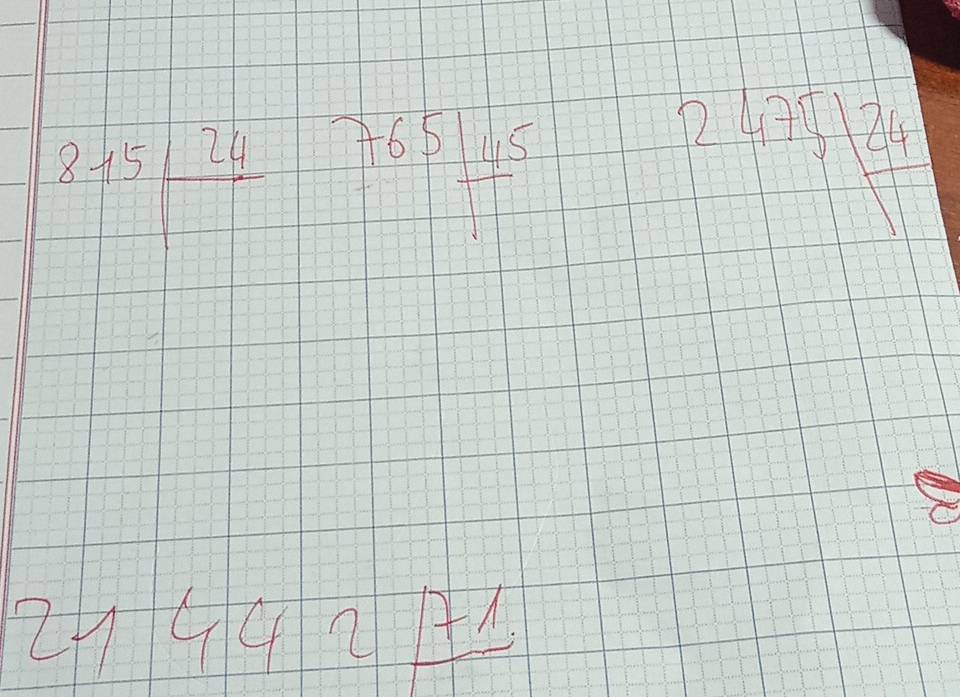 815 24 765 45 2475 24
21442 71